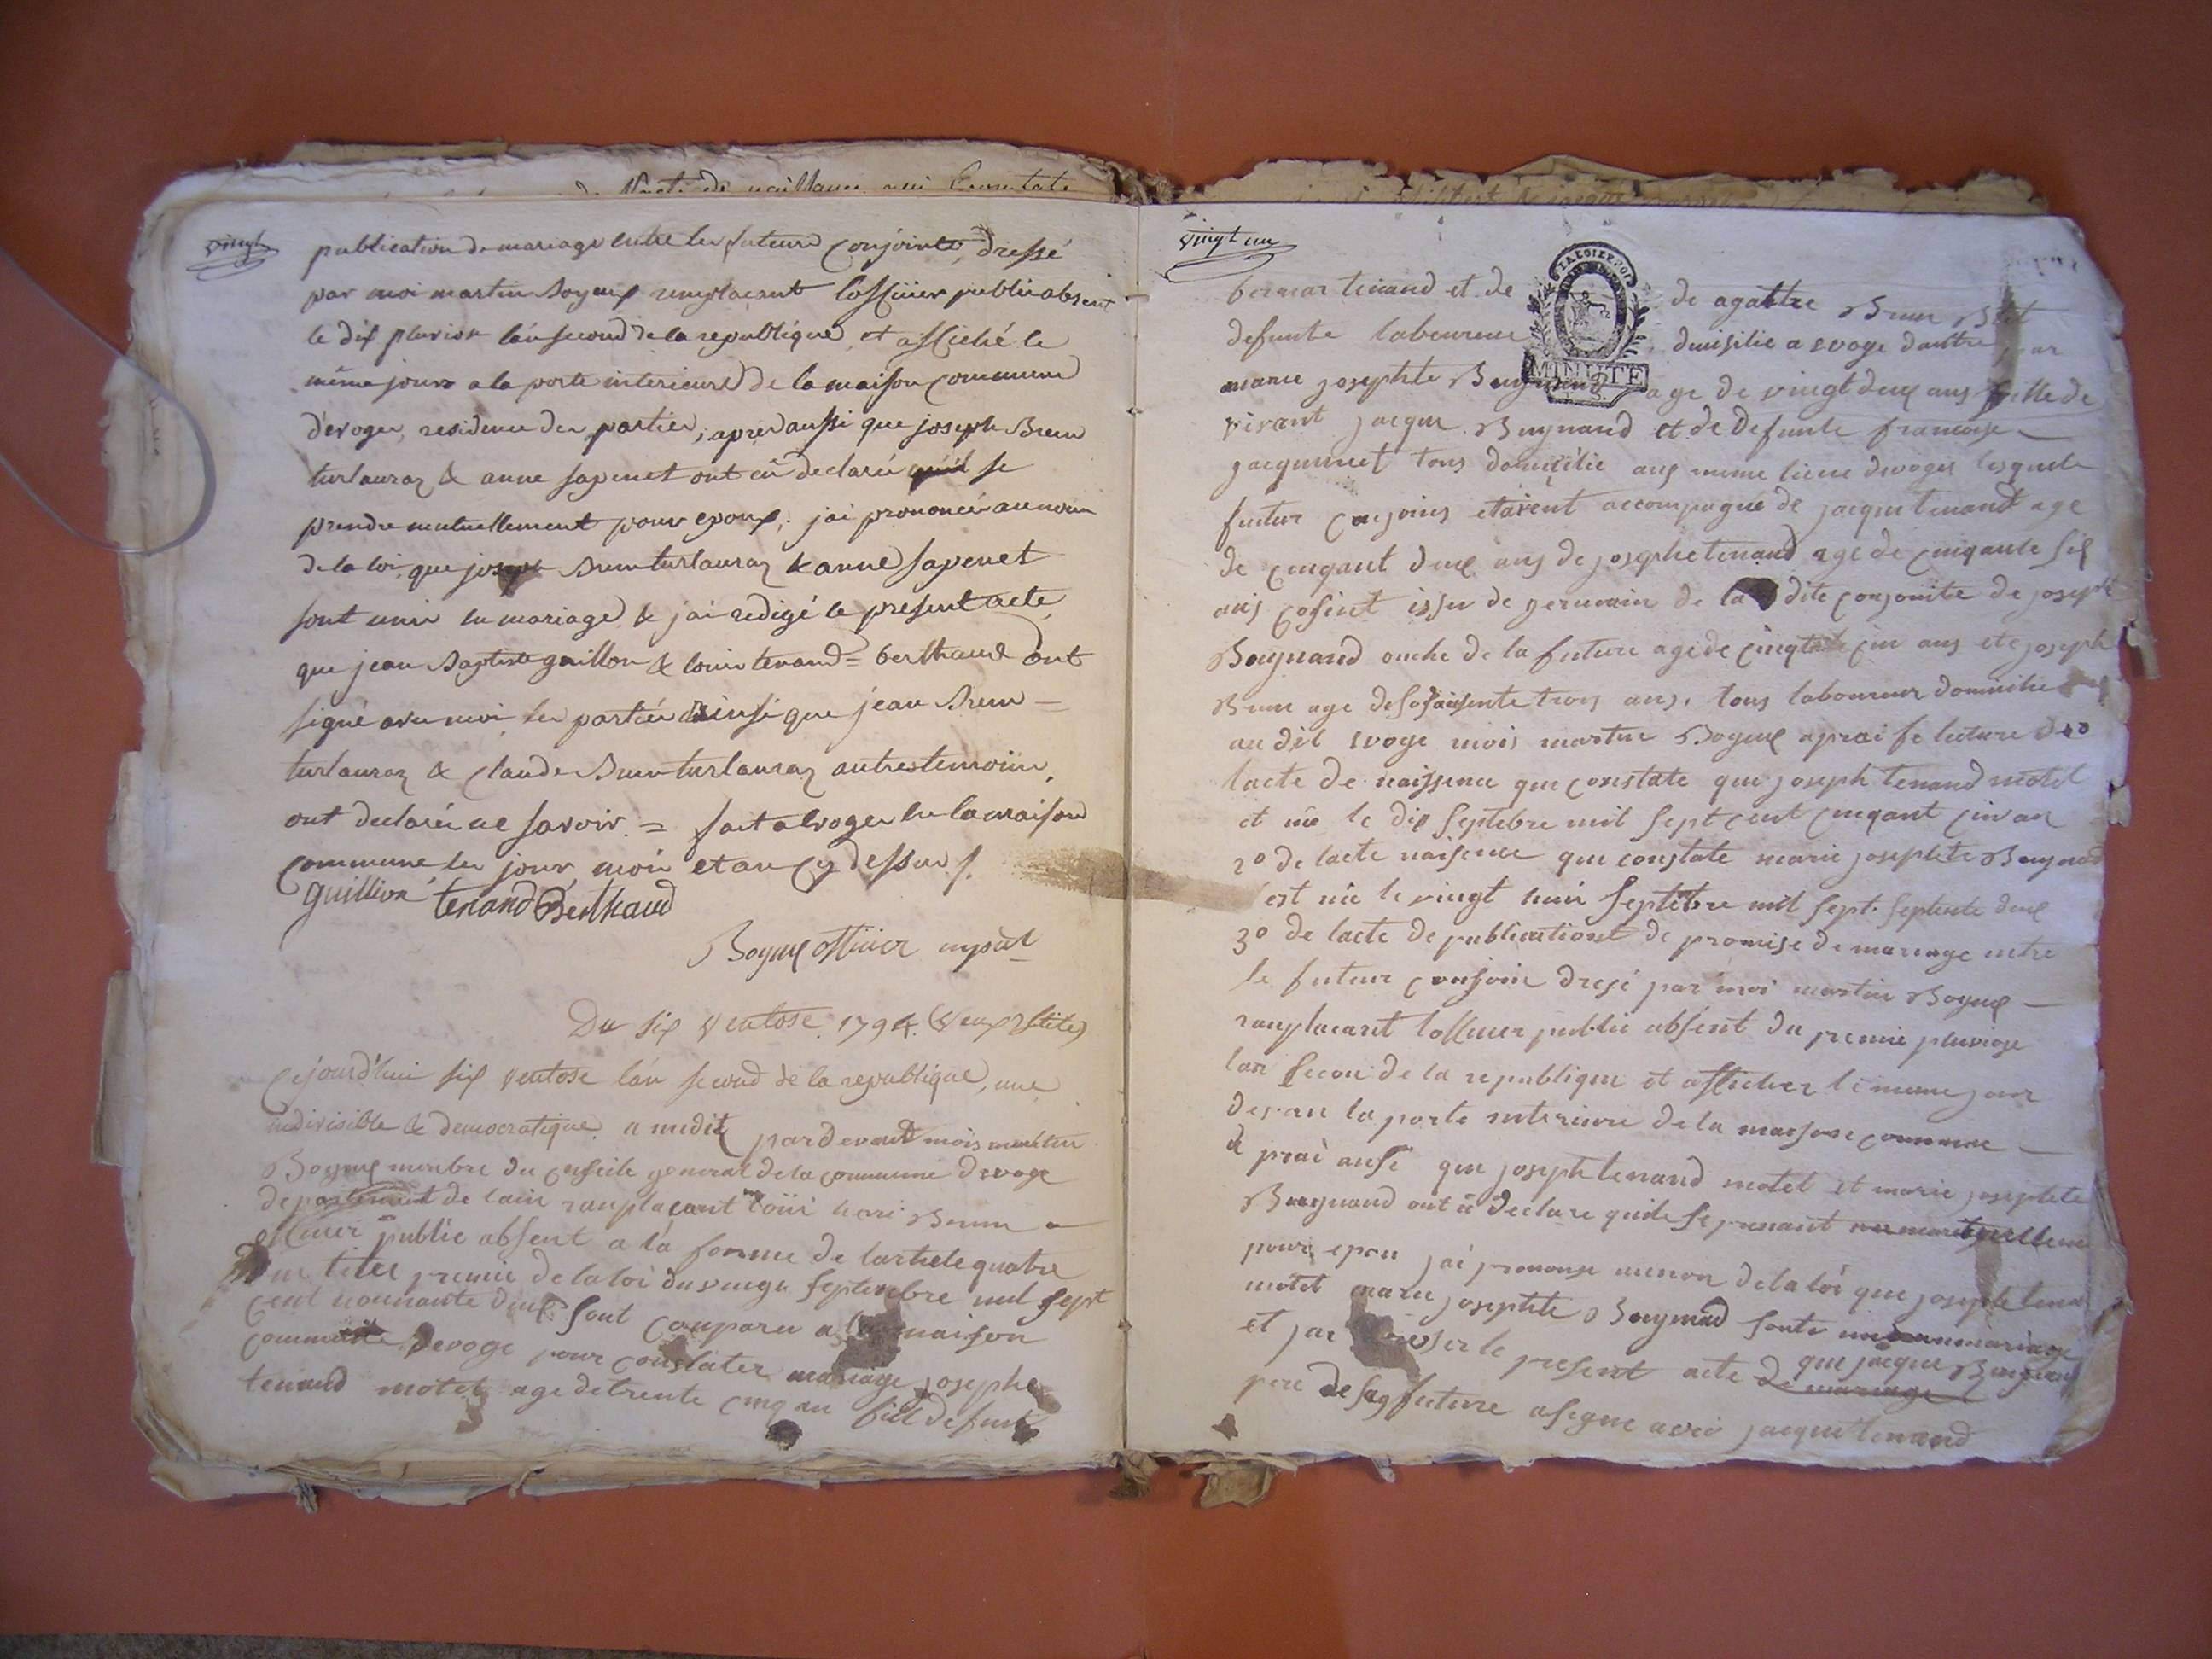 Lacte de naissance qui Constate
vingt
publication de mariage entre les futurs Conjoints, dressé
par moi martin Boyeux remplaçant lofficier public absent
le dix pluviose l'an second de la republique, et affiché le
même jours a la porte interieure de la maison commune
d'evoges, residence des parties, après aussi que joseph Brun
turlauraz & anne sapenet ont eû declarés qu'il se
prendre mutuellement pour epoux, j'ai prononcé au nom
de la loi, que joseph Brun turlauraz & anne sapenet
sont unis en mariage & j'ai redigé le present acte,
que jean Baptiste guillon & louis tenand = berthaud ont
signé avec moi, les parties ainsi que jean Brun =
turlauraz & Claude Brun turlauraz autres temoins,
ont declarés ne savoir. = fait a Evoges en la maison
Commune les jour, mois et an cy dessus /.
guillion tenand Berthaud
Boyeux officier
Du six ventose 1794. (vieux stile)
Cejourd'hui six ventose l'an second de la republique, une
indivisible & democratique. a midit pardevant mois martin
Boyeux menbre du conseile general de la commune devoge
departement de lain ranplaçant loui Brun
officier public absent a la forme de lartiele quatre
du titre premie de la loi du vingt Septenbre mil sept
cent nonnante deux sont conparu a la maison
commune Devoge pour constater mariage josephe
tenand motet age de trente cinq an fils defunt
vingt un
bernar tenand et de de agattre Brun
defunte laboureur domisilie a evoge dauttre par
marie josephte Buynand age de vingt deux ans fille de
vivant jacque Buynand et de defunte francoise
jacquinet tous domicilie aux meme lieux devoges lesquels
futur conjoins etaient accompagné de jacque tenand age
de cinqant deux ans de josephe tenand age de cinqante six
ans cosint issu de germain de la dite conjointe de joseph
Buynand oncke de la future age de cinqte cin ans et joseph
Brun age de soisente trois ans. tous laboureur domicilie
au dit evoge mois martin Boyeux aprai fe lecture de 1o
lacte de naissence que constate que joseph tenand motet
et née le dix septebre mil sept cent cinqant cin an
2o de lacte naisence que constate marie josephte Buynand
est née le vingt septebre mil sept. septente deux
3o de lacte de publications de promise de mariage entre
le future conjoin dresé par moi martin Boyeux
ranplacant lofficier public absent du premie pluviose
lan secon de la republique et afficher le meme jour
devan la porte interieure de la maison commune
a prai ausi que joseph tenand motet et marie josephte
Buynand ont û declare quils se prenant mutuellement
pour epou jai prononse au non de la loi que josephe tenan
motet marie josephte Buynand sonte mariage
et jai dresser le present acte de mariage que jacque Buynand
pere de sag future a signe avec jacque tenand
MINUTE
LA LOI LE ROI